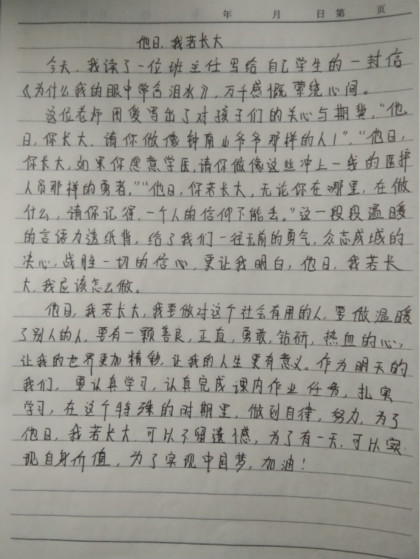 年 月 日 第 页
他日,我若长大
今天,我读了一位班主任写给自己学生的一封信
《为什么我的眼中常含泪水》,万千感慨萦绕心间。
这位老师用爱写出了对孩子们的关心与期望,“他
日,你长大,请你做像钟南山爷爷那样的人!”,“他日,
你长大,如果你愿意学医,请你做像这些冲上一线的医护
人员那样的勇者。”“他日,你若长大,无论你在哪里,在做
什么,请你记得,一个人的信仰不能丢。”这一段段温暖
的言语力透纸背,给了我们一往无前的勇气,众志成城的
决心,战胜一切的信心,更让我明白,他日,我若长
大,我应该怎么做。
他日,我若长大,我要做对这个社会有用的人,要做温暖
了别人的人,要有一颗善良,正直,勇敢,钻研,热血的心,
让我的世界更加精彩,让我的人生更有意义。作为明天的
我们,要认真学习,认真完成课内作业任务,扎实
学习,在这个特殊的时期里,做到自律,努力,为了
他日,我若长大,可以不留遗憾,为了有一天,可以实
现自身价值,为了实现中国梦,加油!